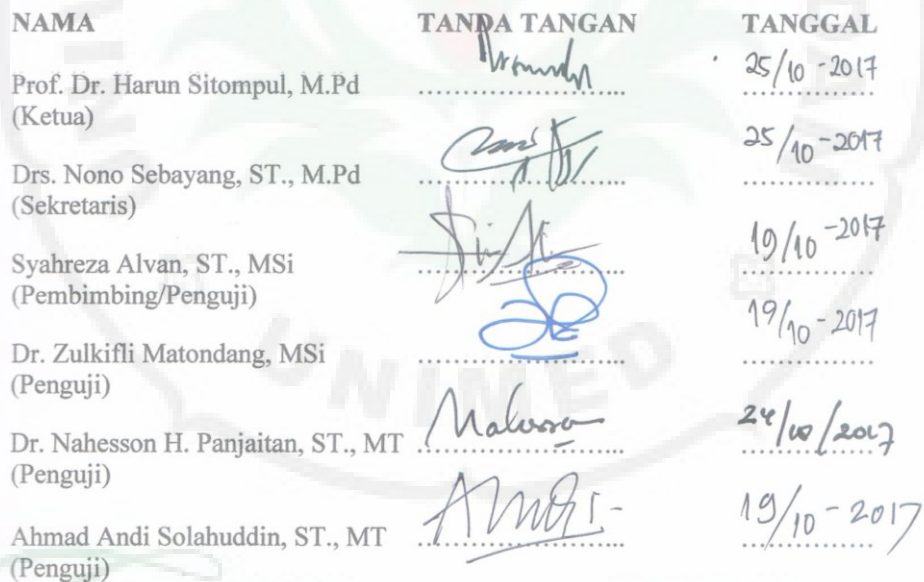 NAMA TANDA TANGAN TANGGAL
25/10 - 2017
Prof. Dr. Harun Sitompul, M.Pd ........................
(Ketua)
25/10 - 2017
Drs. Nono Sebayang, ST., M.Pd ........................ ................
(Sekretaris)
19/10 - 2017
Syahreza Alvan, ST., MSi ........................ ................
(Pembimbing/Penguji)
19/10 - 2017
Dr. Zulkifli Matondang, MSi ........................ ................
(Penguji)
UNIMED
24/10/2017
Dr. Nahesson H. Panjaitan, ST., MT ........................ ................
(Penguji)
19/10 - 2017
Ahmad Andi Solahuddin, ST., MT ........................ ................
(Penguji)